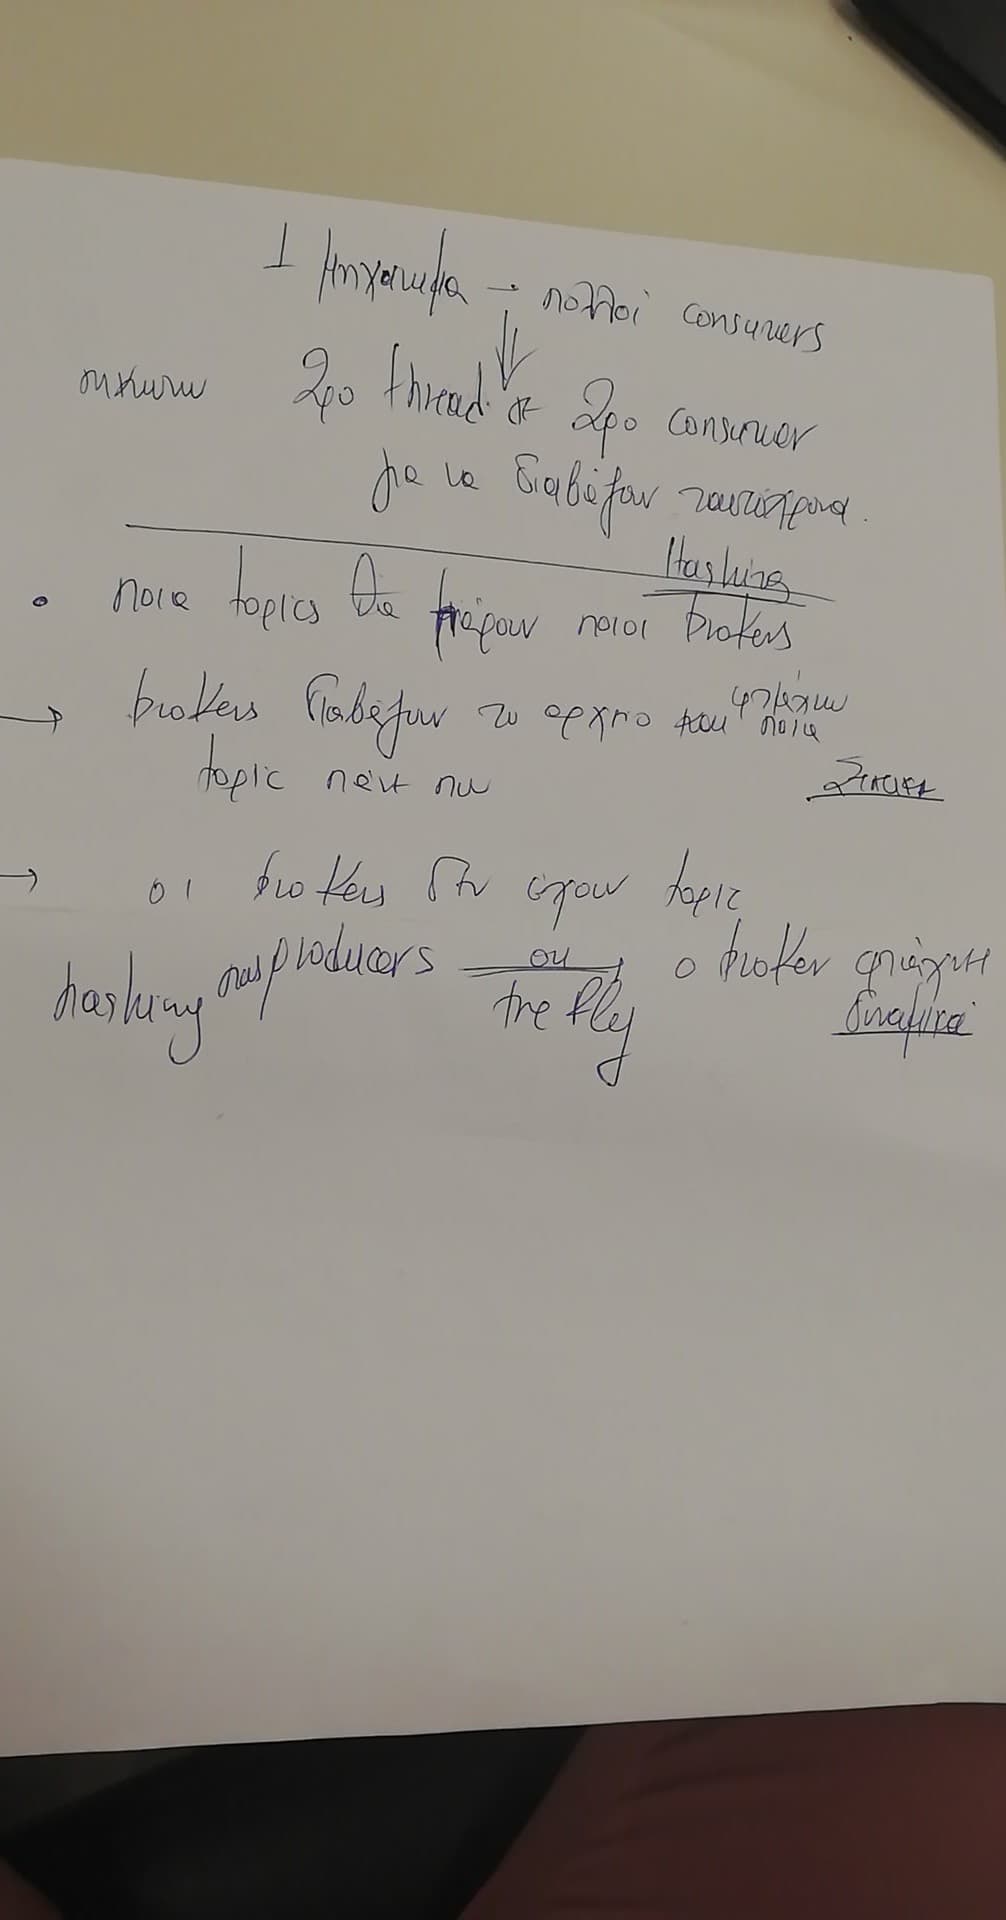 1 μηχανημα → πολλοί consumers
2ρο thread σε 2ρο consumer
για να διαβάζουν ταυτόχρονα.
Hashing
• ποια topics θα πάρουν ποιοι brokers
→ brokers διαβάζουν το αρχειο και φτιάχνουν ποια
topic πάει που
Στατικα
→ οι brokers δεν έχουν topic
hashing producers on the fly, ο broker φτιάχνει
δυναμικά